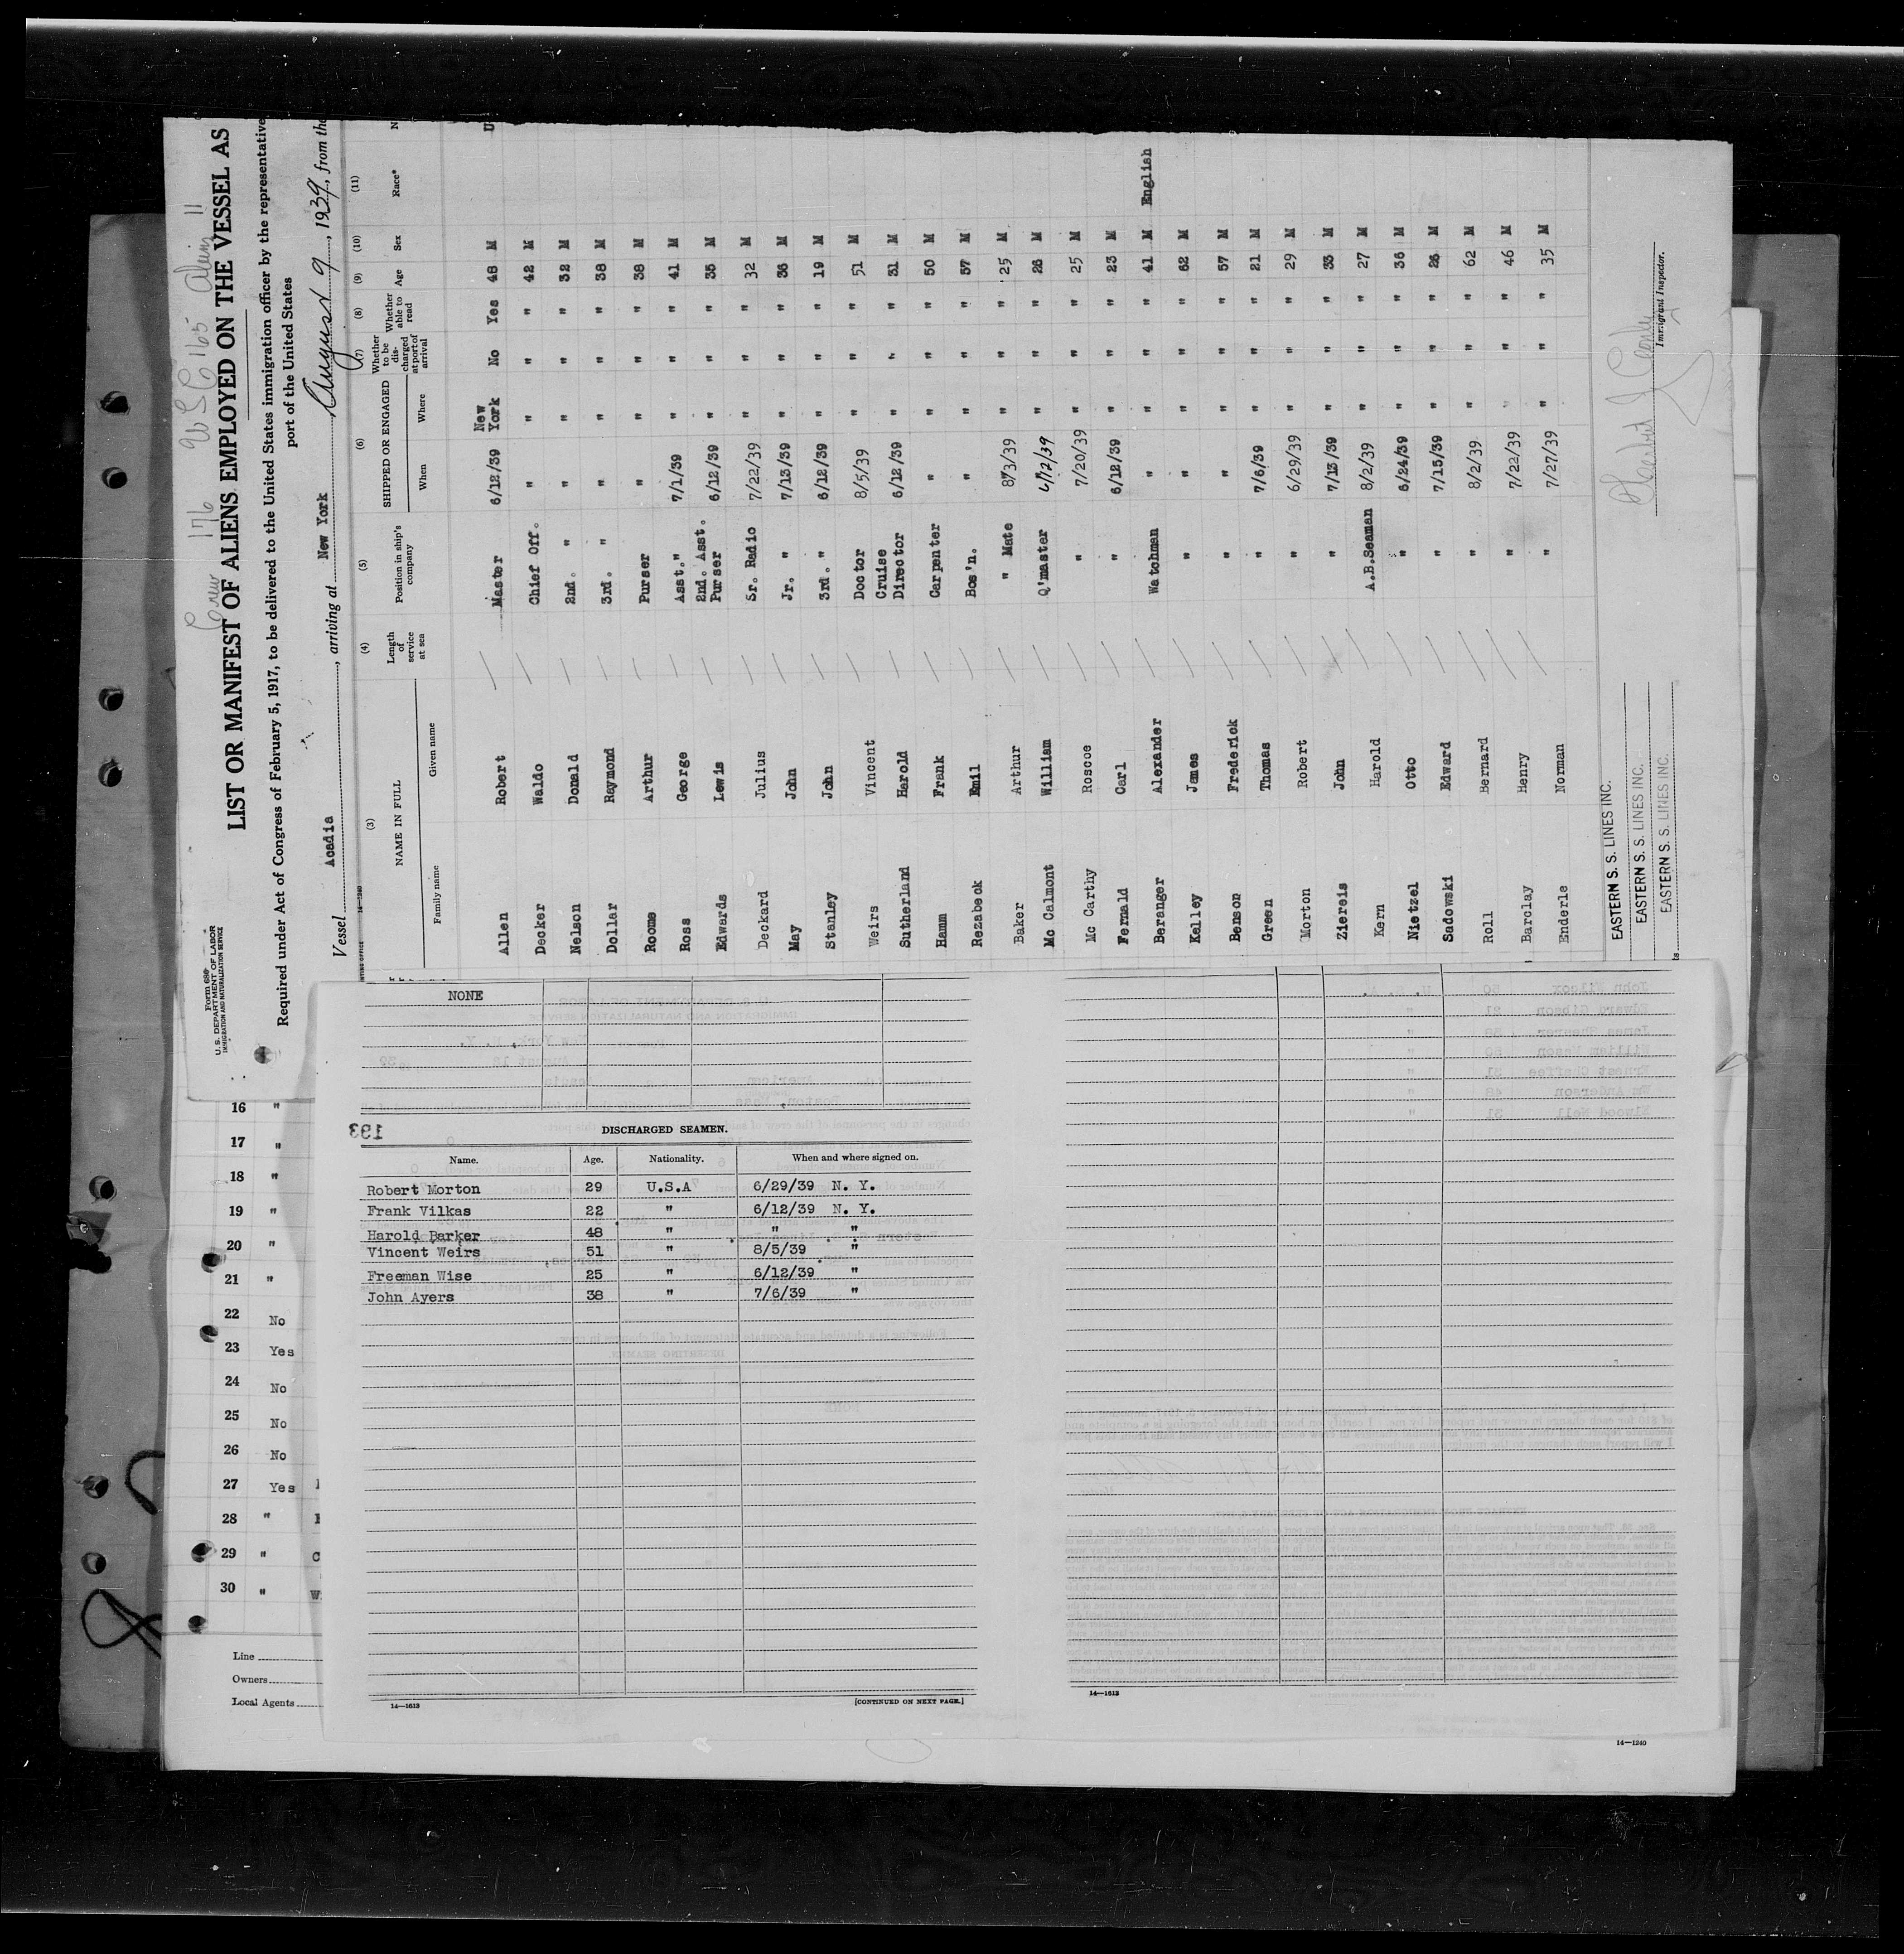 Crew 176 USC 165 Aliens 11
Form 680
U. S. DEPARTMENT OF LABOR
IMMIGRATION AND NATURALIZATION SERVICE
LIST OR MANIFEST OF ALIENS EMPLOYED ON THE VESSEL AS
Required under Act of Congress of February 5, 1917, to be delivered to the United States immigration officer by the representative
port of the United States
Vessel Acadia, arriving at New York August 9, 1939, from the
(3) (4) (5) (6) (7) (8) (9) (10) (11)
NAME IN FULL Length of service at sea Position in ship's company SHIPPED OR ENGAGED Whether to be discharged at port of arrival Whether able to read Age Sex Race* N
Family name Given name When Where
Allen Robert Master 6/12/39 New York No Yes 48 M U
Decker Waldo Chief Off. " " " " 42 M
Nelson Donald 2nd. " " " " " 32 M
Dollar Raymond 3rd. " " " " " 38 M
Rooms Arthur Purser " " " " 38 M
Ross George Asst." 7/1/39 " " " 41 M
Edwards Lewis 2nd. Asst. Purser 6/12/39 " " " 35 M
Deckard Julius Sr. Radio 7/22/39 " " " 32 M
May John Jr. " 7/13/39 " " " 36 M
Stanley John 3rd. " 6/12/39 " " " 19 M
Weirs Vincent Doctor 8/5/39 " " " 51 M
Sutherland Harold Cruise Director 6/12/39 " " " 31 M
Hamm Frank Carpenter " " " " 50 M
Rezabeck Emil Bos'n. " " " " 57 M
Baker Arthur " Mate 8/3/39 " " " 25 M
Mc Calmont William Q'master 6/12/39 " " " 26 M
Mc Carthy Roscoe " 7/20/39 " " " 25 M
Fernald Carl " 6/12/39 " " " 23 M
Beranger Alexander Watchman " " " " 41 M English
Kelley James " " " " " 62 M
Benson Frederick " " " " " 57 M
Green Thomas " 7/6/39 " " " 21 M
Morton Robert " 6/29/39 " " " 29 M
Ziereis John " 7/13/39 " " " 33 M
Kern Harold A.B.Seaman 8/2/39 " " " 27 M
Nietzel Otto " 6/24/39 " " " 36 M
Sadowski Edward " 7/15/39 " " " 26 M
Roll Bernard " 8/2/39 " " " 62 M
Barclay Henry " 7/22/39 " " " 46 M
Enderle Norman " 7/27/39 " " " 35 M
EASTERN S. S. LINES INC.
EASTERN S. S. LINES INC.
EASTERN S. S. LINES INC.
Immigrant Inspector.
NONE
193
DISCHARGED SEAMEN.
Name. Age. Nationality. When and where signed on.
Robert Morton 29 U.S.A 6/29/39 N. Y.
Frank Vilkas 22 " 6/12/39 N. Y.
Harold Barker 48 " " "
Vincent Weirs 51 " 8/5/39 "
Freeman Wise 25 " 6/12/39 "
John Ayers 38 " 7/6/39 "
14—1613
[CONTINUED ON NEXT PAGE.]
14—1613
16 "
17 "
18 "
19 "
20 "
21 "
22 No
23 Yes
24 No
25 No
26 No
27 Yes
28 "
29 "
30 "
Line
Owners
Local Agents
14—1240